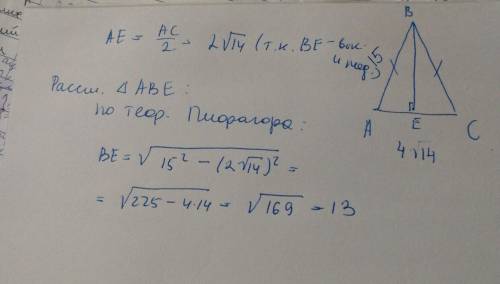 AE = AC/2 = 2√14 (т.к. BE - выс.
и мед.)
Рассм. △ ABE:
по теор. Пифагора:
BE = √(15² - (2√14)²) =
= √(225 - 4·14) = √169 = 13
B
15
A
E
C
4√14